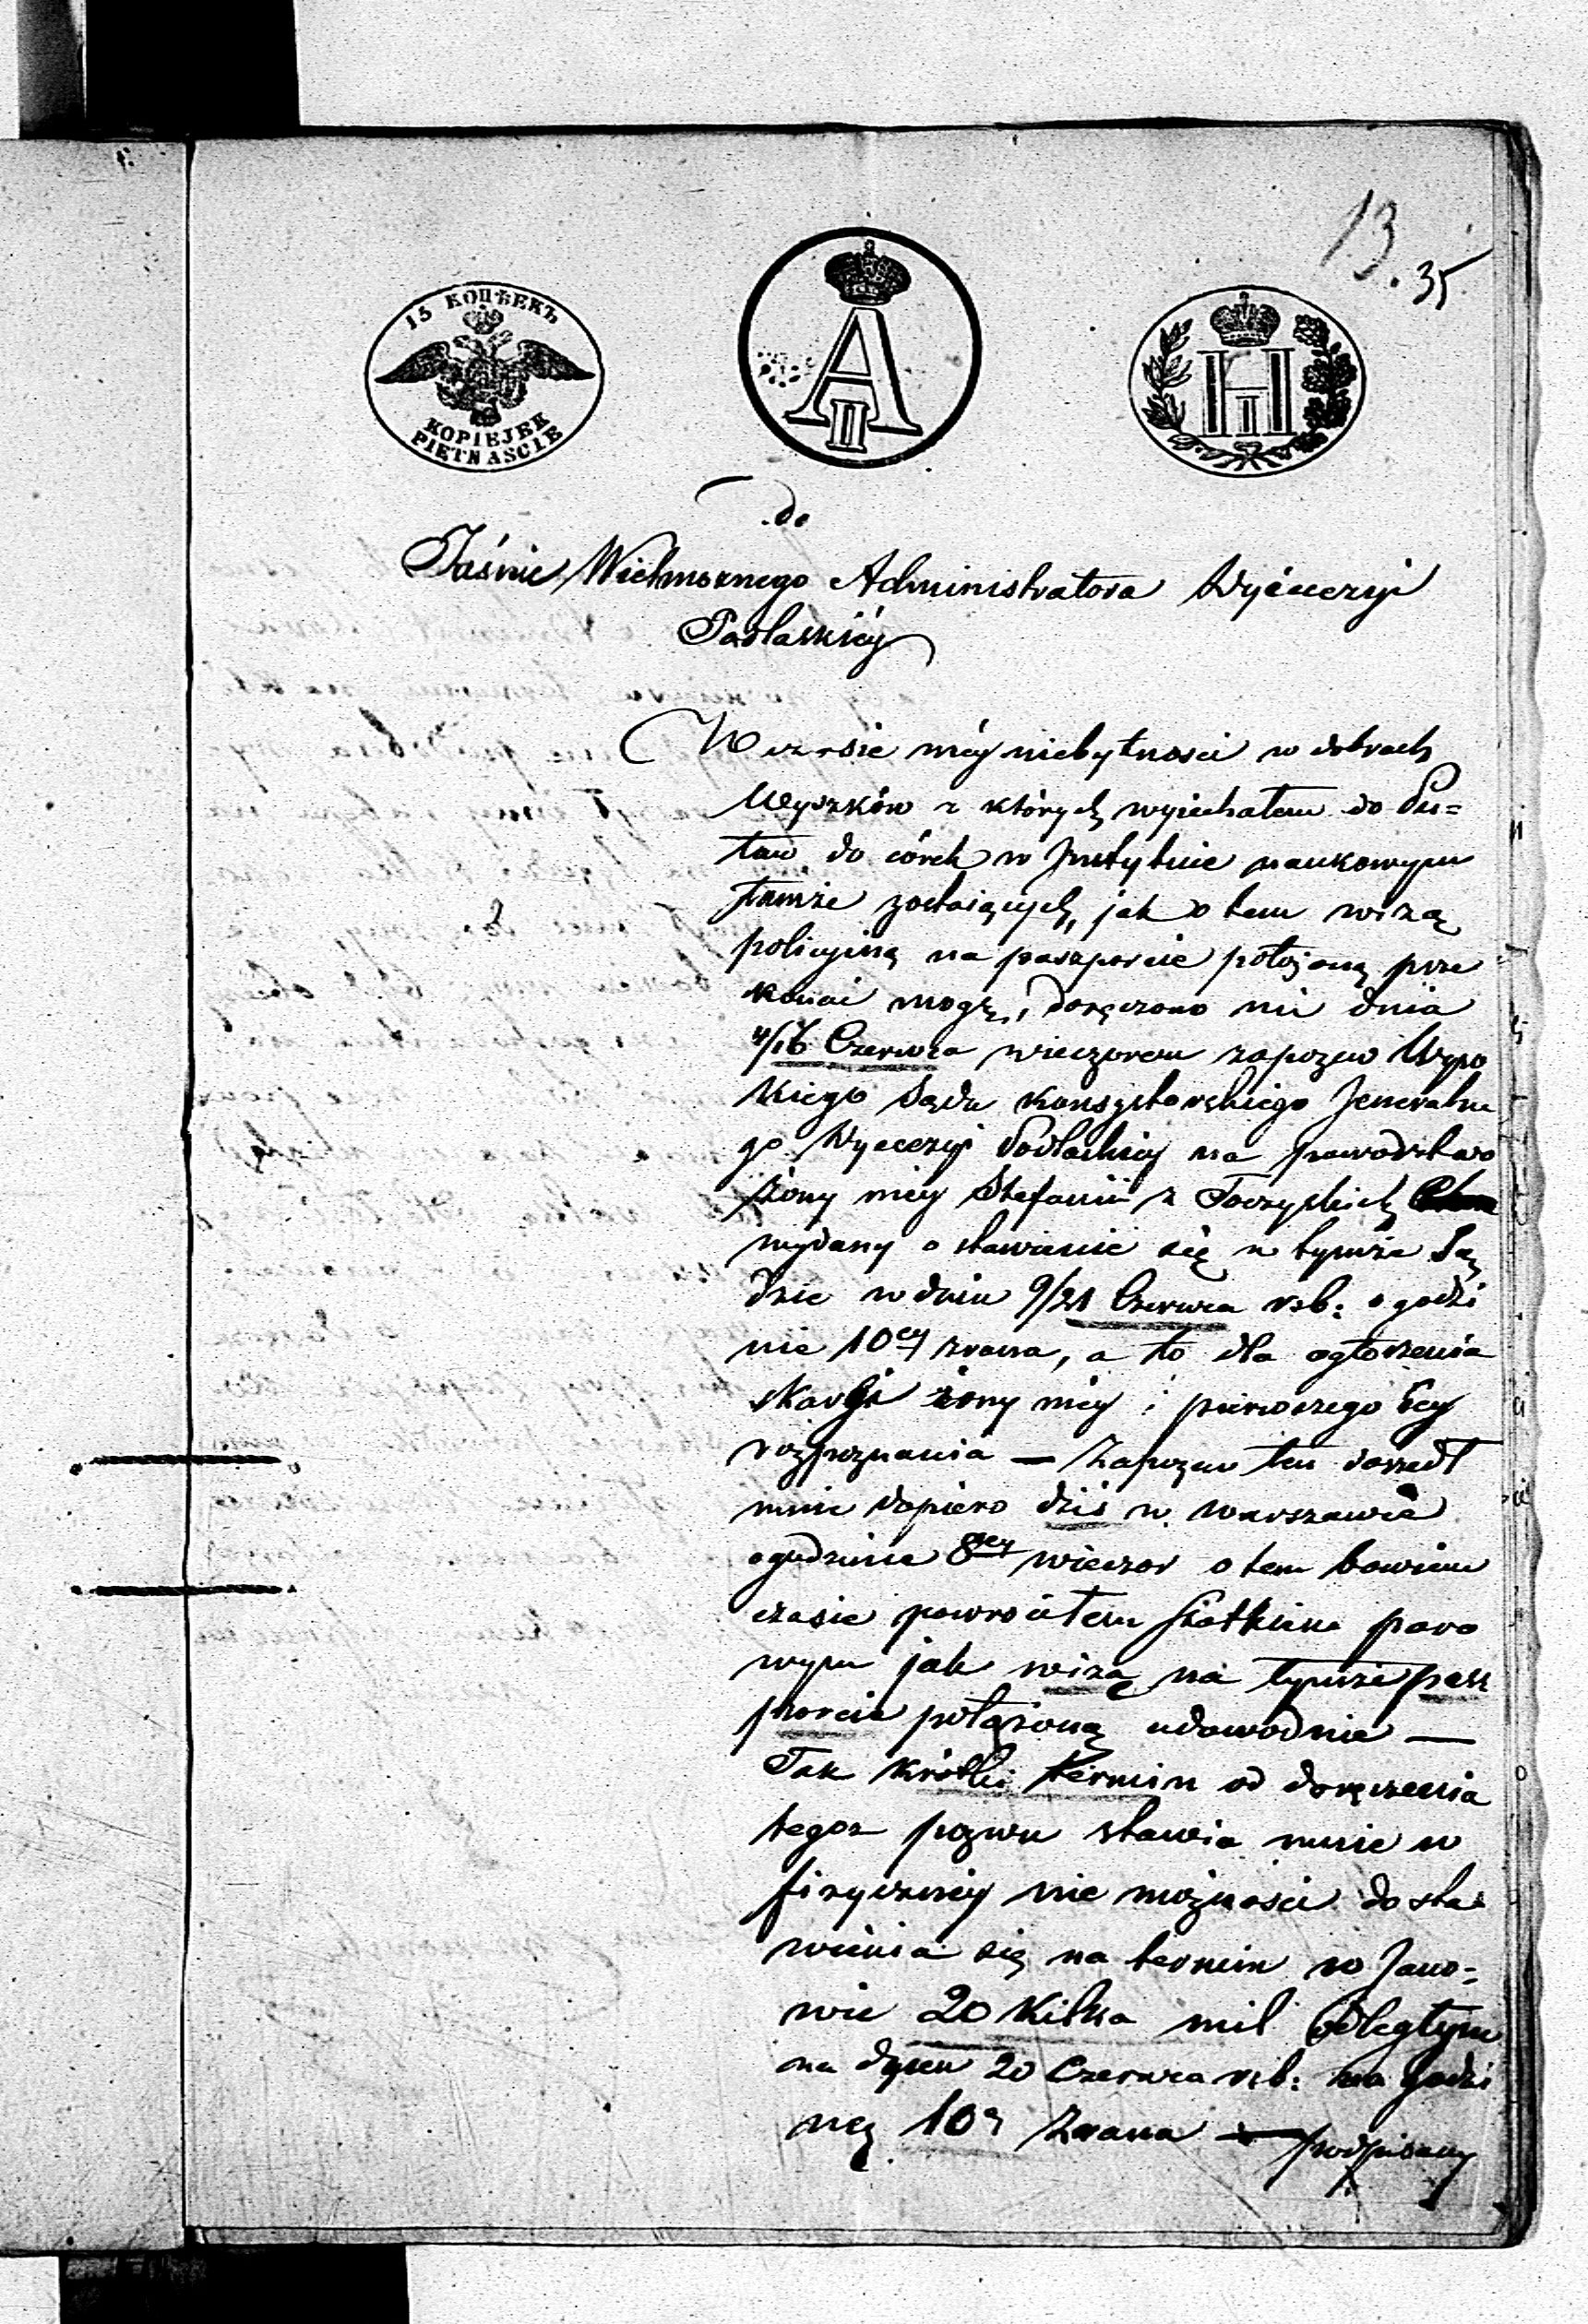 13.
35
15 КОПѢЕКЪ
KOPIEJEK
PIETNASCIE
A
II
H
I
do
Jaśnie Wielmożnego Administratora Dyecezyi
Podlaskiéy
W czasie méy niebytnosci w dobrach
Wyszków z których wyiechałem do Pu=
ław do córek w Instytucie naukowym
tamże zostaiących, jak o tem wizą
policyiną na paszporcie położoną prze
konać mogę, doręczono mi dnia
4/16 Czerwca wieczorem zapozew
kiego Sądu Konsystorskiego Jeneralne
go Dyecezyi Podlaskiey na powodztwo
żony mey Stefanii z Toczyskich
wydany o stawienie się w tymże Są
dzie w dniu 9/21 Czerwca rb: o godzi
nie 10ey zrana, a to dla ogłoszenia
skargi żony mey i pierwszego Jey
rozpoznania — Zapozew ten doszedł
mnie dopiero dziś w Warszawie
o godzinie 8ey wieczor o tem bowiem
czasie powrociłem Statkiem paro
wym jak wizą na tymże pasz
porcie położoną udowodnie —
Tak krótki termin od doręczenia
tegoz pozwu stawia mnie w
fizyczney nie możności do sta
wienia się na termin w Jano=
wie 20 kilka mil odległym
na dzien 20 Czerwca rb: na godzi
nę 10ą zrana — podpisany